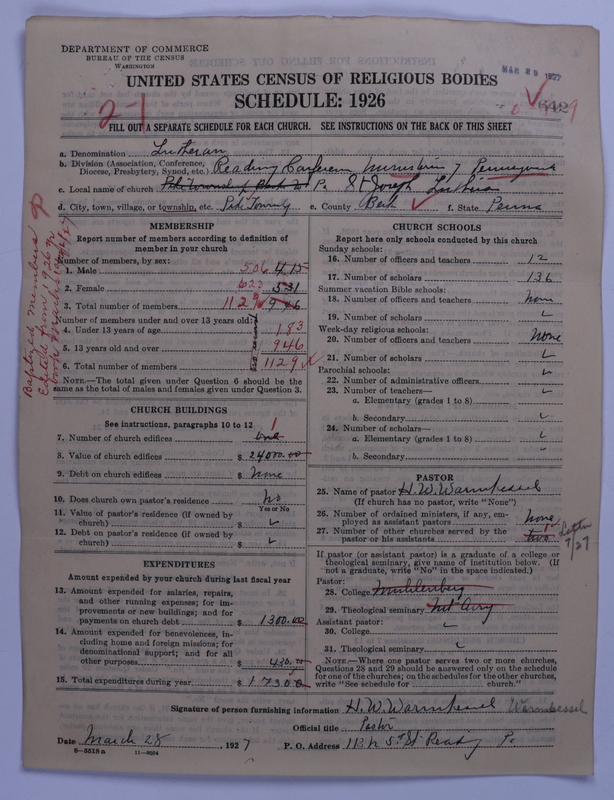 DEPARTMENT OF COMMERCE
BUREAU OF THE CENSUS
WASHINGTON
MAR 29 1927
UNITED STATES CENSUS OF RELIGIOUS BODIES
SCHEDULE: 1926
2-1
FILL OUT A SEPARATE SCHEDULE FOR EACH CHURCH. SEE INSTRUCTIONS ON THE BACK OF THIS SHEET
a. Denomination Lutheran
b. Division (Association, Conference, Diocese, Presbytery, Synod, etc.) Reading Conference
c. Local name of church St Joseph Lutheran
d. City, town, village, or township, etc. Pike Township e. County Berk f. State Penna
MEMBERSHIP
Report number of members according to definition of member in your church
Number of members, by sex:
1. Male 506 415
2. Female 623 531
3. Total number of members 1129 946
Number of members under and over 13 years old:
4. Under 13 years of age 183
5. 13 years old and over 946
6. Total number of members 1129
NOTE.—The total given under Question 6 should be the same as the total of males and females given under Question 3.
Baptized members
CHURCH BUILDINGS
See instructions, paragraphs 10 to 12
7. Number of church edifices one 1
8. Value of church edifices $ 24000.00
9. Debt on church edifices $ none
10. Does church own pastor's residence No
Yes or No
11. Value of pastor's residence (if owned by church) $
12. Debt on pastor's residence (if owned by church) $
EXPENDITURES
Amount expended by your church during last fiscal year
13. Amount expended for salaries, repairs, and other running expenses; for improvements or new buildings; and for payments on church debt $ 1300.00
14. Amount expended for benevolences, including home and foreign missions; for denominational support; and for all other purposes $ 430.00
15. Total expenditures during year $ 1730.0
CHURCH SCHOOLS
Report here only schools conducted by this church
Sunday schools:
16. Number of officers and teachers 12
17. Number of scholars 136
Summer vacation Bible schools:
18. Number of officers and teachers none
19. Number of scholars
Week-day religious schools:
20. Number of officers and teachers None
21. Number of scholars
Parochial schools:
22. Number of administrative officers
23. Number of teachers—
a. Elementary (grades 1 to 8)
b. Secondary
24. Number of scholars—
a. Elementary (grades 1 to 8)
b. Secondary
PASTOR
25. Name of pastor H. W. Warmkessel
(If church has no pastor, write "None")
26. Number of ordained ministers, if any, employed as assistant pastors None
27. Number of other churches served by the pastor or his assistants two 1
Letter
If pastor (or assistant pastor) is a graduate of a college or theological seminary, give name of institution below. (If not a graduate, write "No" in the space indicated.)
Pastor:
28. College Muhlenberg
29. Theological seminary Mt Airy
Assistant pastor:
30. College
31. Theological seminary
NOTE.—Where one pastor serves two or more churches, Questions 28 and 29 should be answered only on the schedule for one of the churches; on the schedules for the other churches, write "See schedule for church."
Signature of person furnishing information H. W. Warmkessel Warmkessel
Official title Pastor
Date March 28, 1927 P. O. Address 1132 N 5th St Reading Pa
8—5518a 11—9004